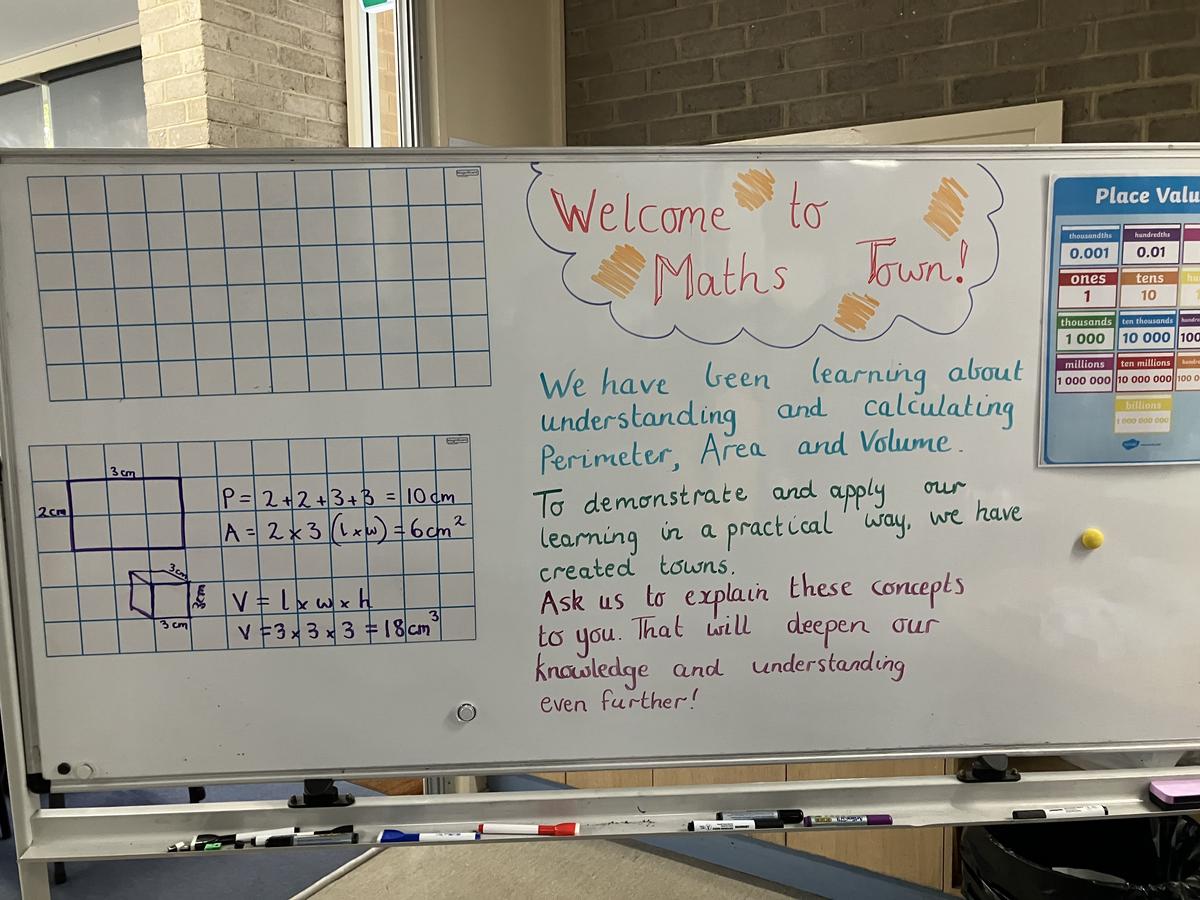 Welcome to
Maths Town!
We have been learning about
understanding and calculating
Perimeter, Area and Volume.
To demonstrate and apply our
learning in a practical way, we have
created towns.
Ask us to explain these concepts
to you. That will deepen our
knowledge and understanding
even further!
3cm
2cm
P = 2+2+3+3 = 10cm
A = 2 x 3 (l x w) = 6cm²
3cm
3cm
3cm
V = l x w x h
V = 3 x 3 x 3 = 18cm³
Place Valu
thousandths hundredths
0.001 0.01
ones tens hu
1 10 1
thousands ten thousands hundre
1 000 10 000 100
millions ten millions hundre
1 000 000 10 000 000 100 0
billions
1 000 000 000